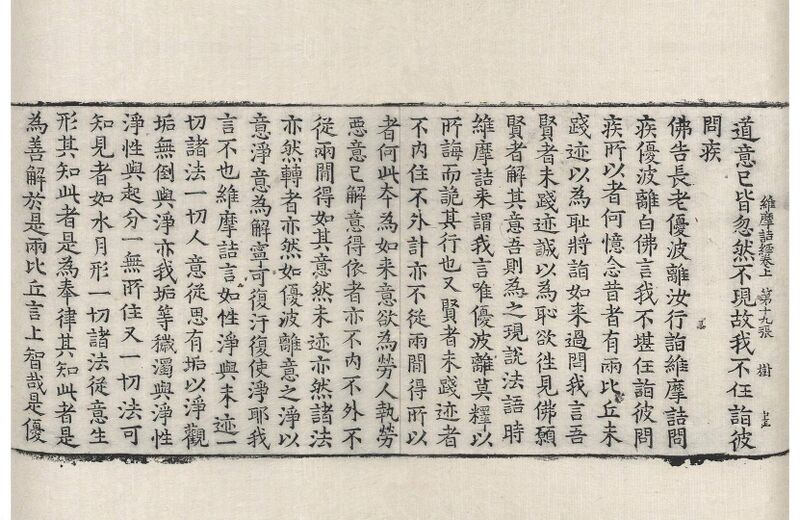 維摩詰經卷上　第十九張　樹
道意已皆忽然不現故我不任詣彼
問疾
佛告長老優波離汝行詣維摩詰問
疾優波離白佛言我不堪任詣彼問
疾所以者何憶念昔者有兩比丘未
踐迹以為恥將詣如來過問我言吾
賢者未踐迹誠以為恥欲往見佛願
賢者解其意吾則為之現說法語時
維摩詰來謂我言唯優波離莫釋以
所誨而詭其行也又賢者未踐迹者
不內住不外計亦不從兩間得所以
者何此本為如來意欲為勞人執勞
惡意已解意得依者亦不內不外不
從兩間得如其意然未迹亦然諸法
亦然轉者亦然如優波離意之淨以
意淨意為解寧可復汙復使淨耶我
言不也維摩詰言如性淨與未迹一
切諸法一切人意從思有垢以淨觀
垢無倒與淨亦我垢等穢濁與淨性
淨性與起分一無所住又一切法可
知見者如水月形一切諸法從意生
形其知此者是為奉律其知此者是
為善解於是兩比丘言上智哉是優